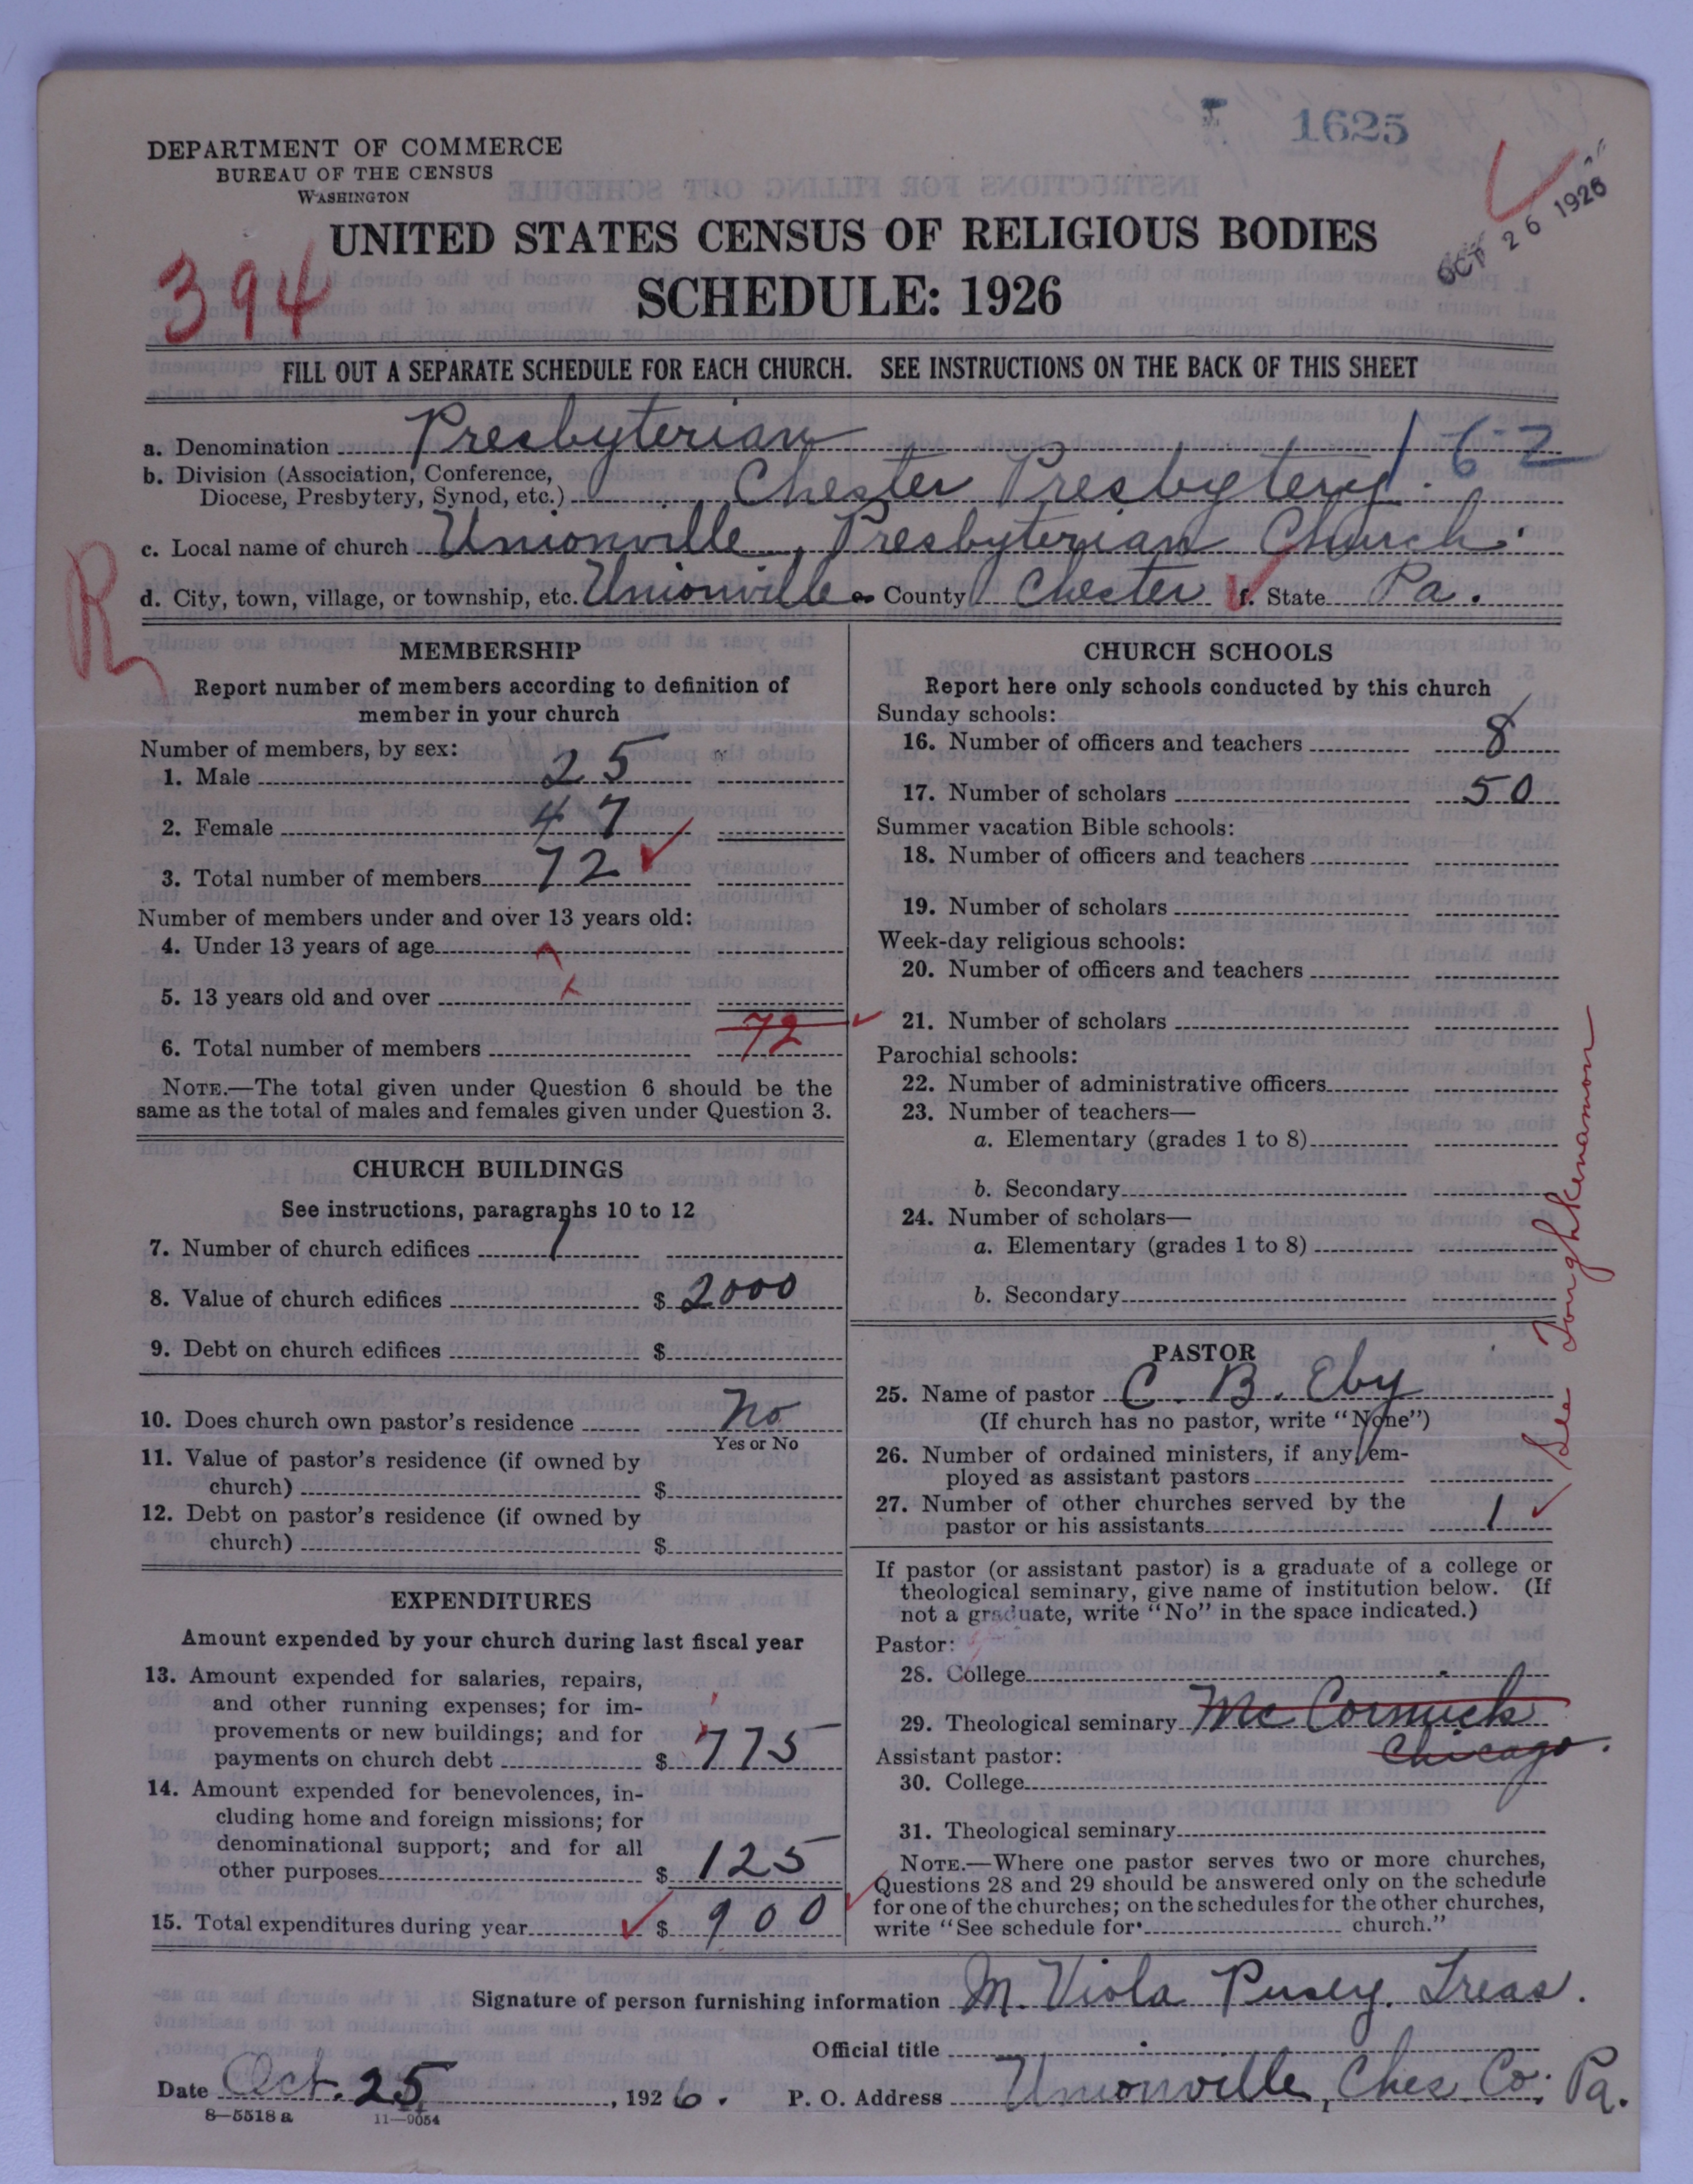 1625
DEPARTMENT OF COMMERCE
BUREAU OF THE CENSUS
WASHINGTON
OCT 26 1926
UNITED STATES CENSUS OF RELIGIOUS BODIES
394
SCHEDULE: 1926
FILL OUT A SEPARATE SCHEDULE FOR EACH CHURCH. SEE INSTRUCTIONS ON THE BACK OF THIS SHEET
a. Denomination Presbyterian 1-6-2
b. Division (Association, Conference,
Diocese, Presbytery, Synod, etc.) Chester Presbytery.
c. Local name of church Unionville, Presbyterian Church.
R
d. City, town, village, or township, etc. Unionville e. County Chester f. State Pa.
MEMBERSHIP
Report number of members according to definition of
member in your church
Number of members, by sex:
1. Male 25
2. Female 47
3. Total number of members 72
Number of members under and over 13 years old:
4. Under 13 years of age
5. 13 years old and over x
6. Total number of members 72
NOTE.—The total given under Question 6 should be the
same as the total of males and females given under Question 3.
CHURCH BUILDINGS
See instructions, paragraphs 10 to 12
7. Number of church edifices 1
8. Value of church edifices $ 2000
9. Debt on church edifices $
10. Does church own pastor's residence No
Yes or No
11. Value of pastor's residence (if owned by
church) $
12. Debt on pastor's residence (if owned by
church) $
EXPENDITURES
Amount expended by your church during last fiscal year
13. Amount expended for salaries, repairs,
and other running expenses; for im-
provements or new buildings; and for
payments on church debt $ 775
14. Amount expended for benevolences, in-
cluding home and foreign missions; for
denominational support; and for all
other purposes $ 125
15. Total expenditures during year $ 900
CHURCH SCHOOLS
Report here only schools conducted by this church
Sunday schools:
16. Number of officers and teachers 8
17. Number of scholars 50
Summer vacation Bible schools:
18. Number of officers and teachers
19. Number of scholars
Week-day religious schools:
20. Number of officers and teachers
21. Number of scholars
Parochial schools:
22. Number of administrative officers
23. Number of teachers—
a. Elementary (grades 1 to 8)
b. Secondary
24. Number of scholars—
a. Elementary (grades 1 to 8)
b. Secondary
See Toughkenamon
PASTOR
25. Name of pastor C. B. Eby
(If church has no pastor, write "None")
26. Number of ordained ministers, if any, em-
ployed as assistant pastors
27. Number of other churches served by the
pastor or his assistants 1
If pastor (or assistant pastor) is a graduate of a college or
theological seminary, give name of institution below. (If
not a graduate, write "No" in the space indicated.)
Pastor:
28. College
29. Theological seminary Mc Cormick
Chicago.
Assistant pastor:
30. College
31. Theological seminary
NOTE.—Where one pastor serves two or more churches,
Questions 28 and 29 should be answered only on the schedule
for one of the churches; on the schedules for the other churches,
write "See schedule for church."
Signature of person furnishing information M. Viola Pusey. Treas.
Official title
Date Oct. 25, 1926. P. O. Address Unionville, Ches Co. Pa.
8—5518 a 11—9054